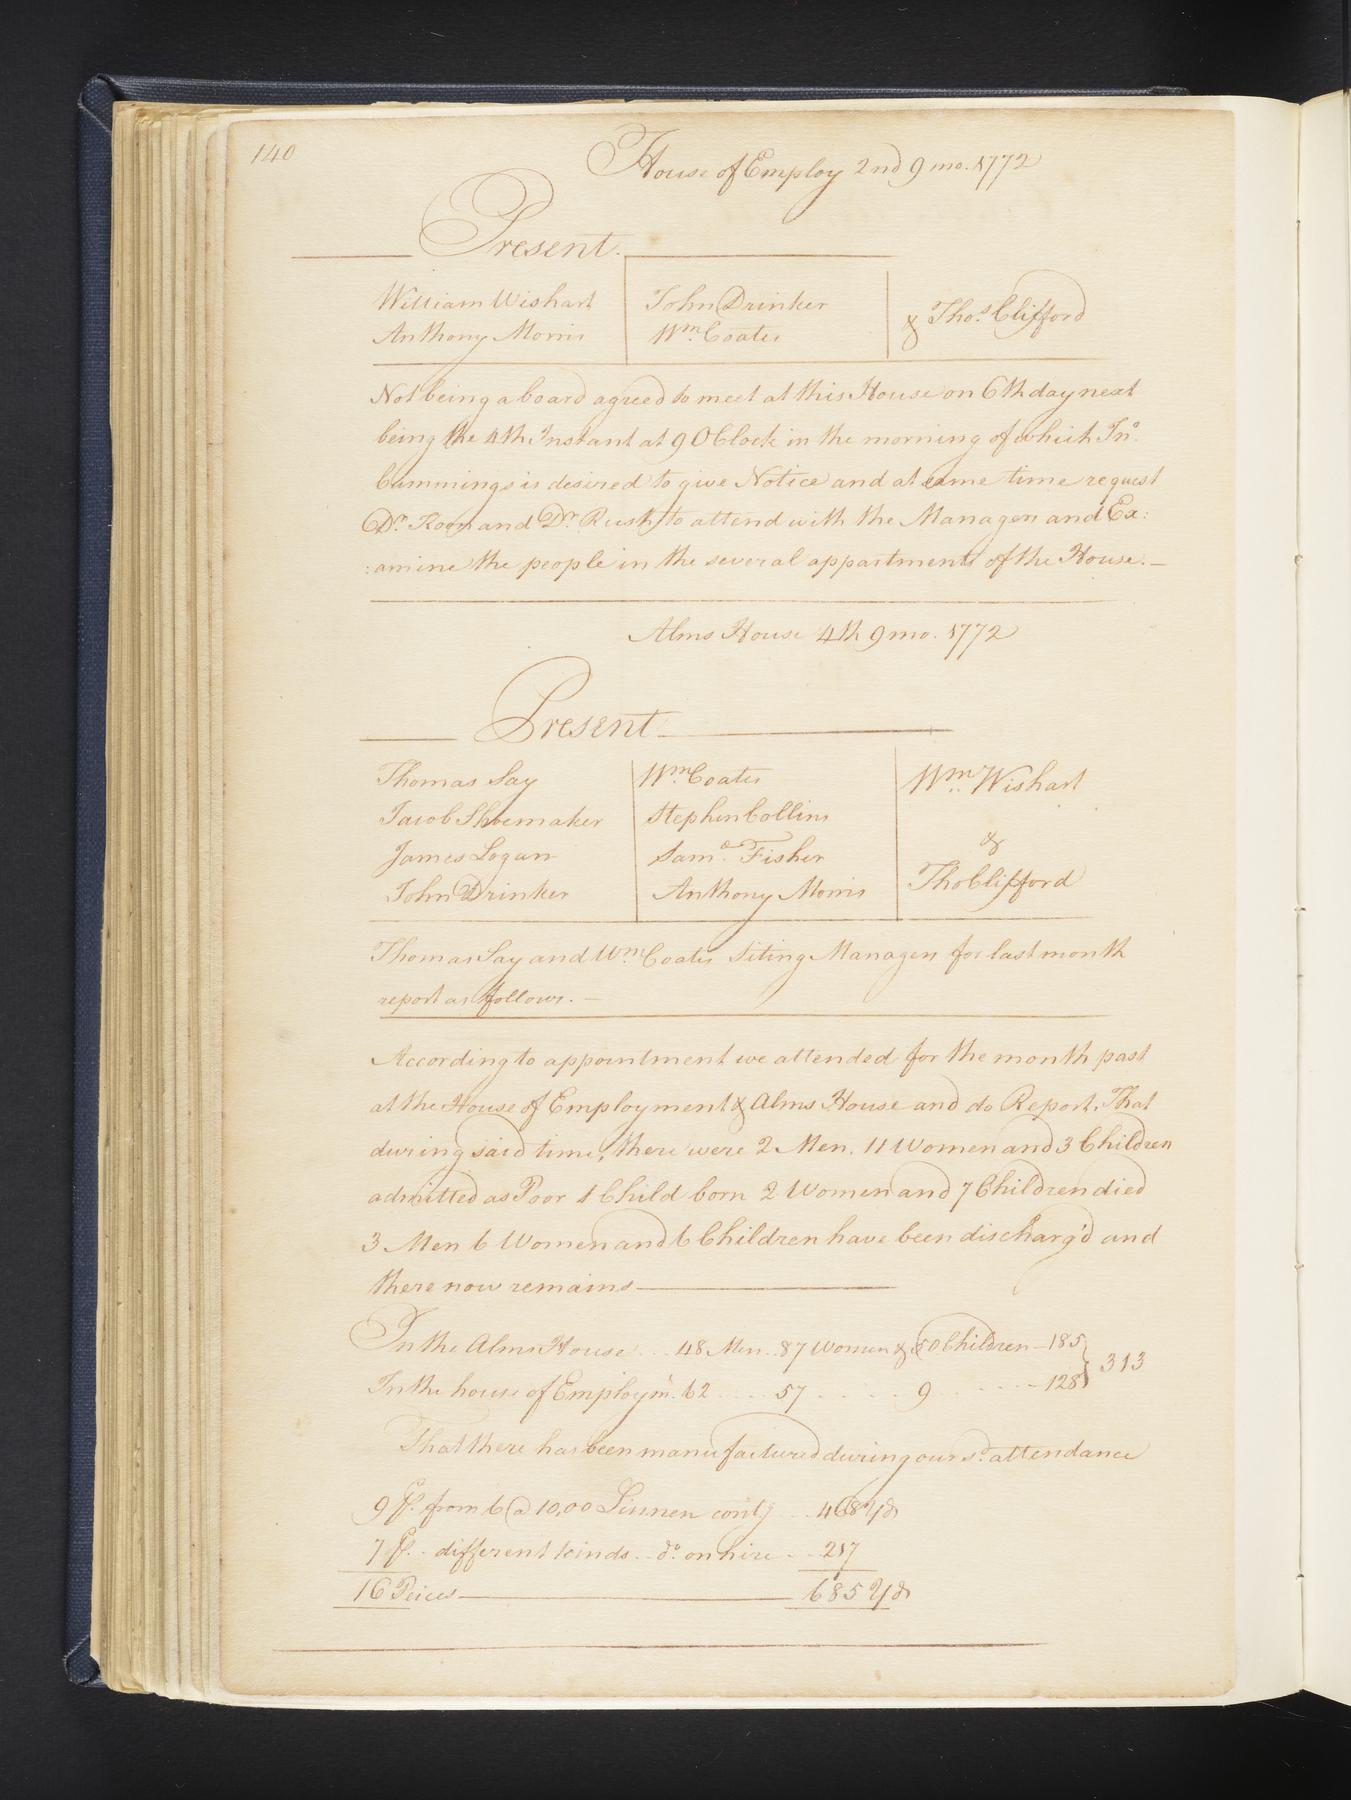 140
House of Employ 2nd 9 mo. 1772
Present.
William Wishart
Anthony Morris
John Drinker
Wm. Coates
& Thos. Clifford
Not being a board agreed to meet at this House on 6th day next
being the 4th Instant at 9 OClock in the morning of which Jno.
Cummings is desired to give Notice and at same time request
Dr. and Dr. Rush to attend with the Managers and Ex:
:amine the people in the several appartments of the House.—
Alms House 4th 9 mo. 1772
Present
Thomas Say
Jacob Shoemaker
James Logan
John Drinker
Wm. Coates
Stephen Collins
Saml. Fisher
Anthony Morris
Wm. Wishart
&
Tho Clifford
Thomas Say and Wm. Coates Siting Managers for last month
report as follows.—
According to appointment we attended for the month past
at the House of Employment & Alms House and do Report, That
during said time, there were 2 Men. 11 Women and 3 Children
admitted as Poor 1 Child born 2 Women and 7 Children died
3 Men 6 Women and 6 Children have been discharg'd and
there now remains
In the Alms House . . . 48 Men . 87 Women & 50 Children — 185
In the house of Employm. 62 . . . . 57 . . . . . 9 . . . . . . 128
313
That there has been manufactured during our sd. attendance
9 ps. from 6 @ 10,00 Linnen contg . . 468 Yds
7 ps. . different kinds . . do. on hire . . 217
16 Peices 685 Yds